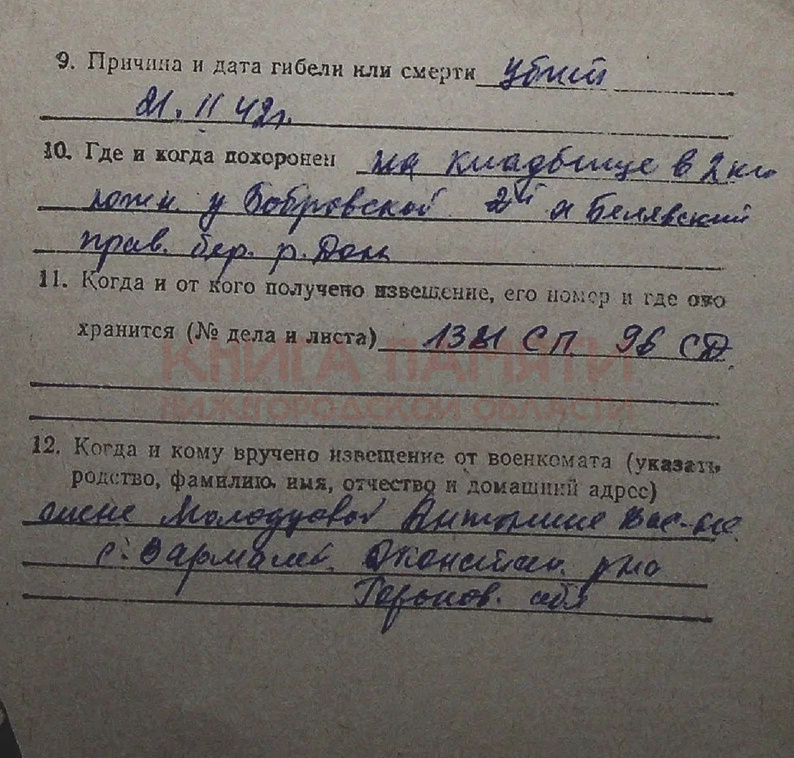 9. Причина и дата гибели или смерти убит
21. 11 42 г.
10. Где и когда похоронен на кладбище в 2 км
южн. у Бобровской 2й и Белявский
прав. бер. р. Дон
11. Когда и от кого получено извещение, его номер и где оно
хранится (№ дела и листа) СП 96 СД
КНИГА ПАМЯТИ
НИЖЕГОРОДСКОЙ ОБЛАСТИ
12. Когда и кому вручено извещение от военкомата (указать
родство, фамилию, имя, отчество и домашний адрес)
жене Антонине Вас-не
с. Вармалей р-на
Горьков. обл